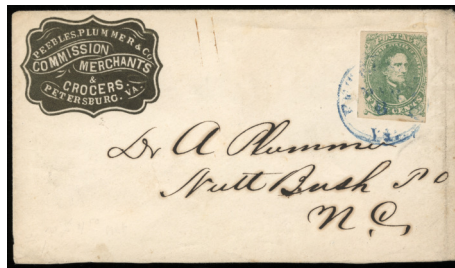 PEEBLES, PLUMMER & CO.
COMMISSION
MERCHANTS
&
GROCERS,
PETERSBURG, VA.
CENTS
Dr A Plummer
Nutt Bush P O
N. C.